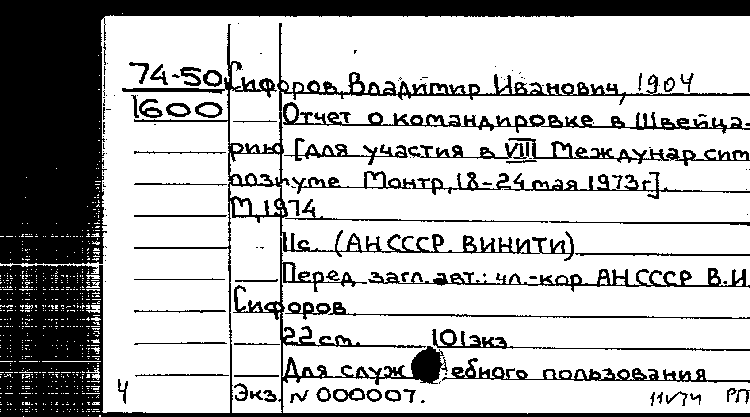 74-50 Сифоров, Владимир Иванович, 1904
1600 Отчет о командировке в Швейца-
рию [для участия в VIII Междунар сим
позиуме Монтр, 18-24 мая 1973г].
М, 1974.
11с. (АН СССР. ВИНИТИ)
Перед загл. авт.: чл.-кор АН СССР В.И.
Сифоров
22 см. 101 экз
Для служебного пользования
4 Экз. N 000007.